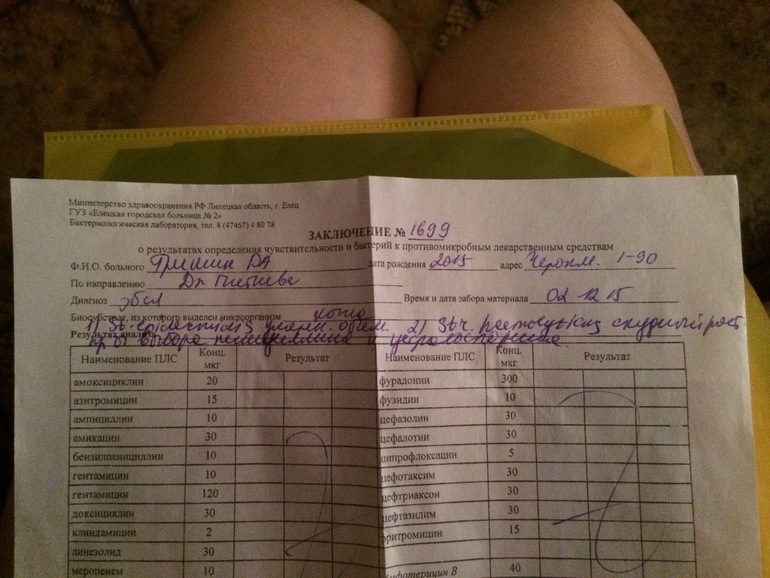 Министерство здравоохранения РФ Липецкая область, г. Елец
ГУЗ «Елецкая городская больница № 2»
Бактериологическая лаборатория, тел. 8 (47467) 4 80 78
ЗАКЛЮЧЕНИЕ № 1699
о результатах определения чувствительности и бактерий к противомикробным лекарственным средствам
Ф.И.О. больного Гришин ДА дата рождения 2015 адрес 1-90
По направлению Др.
Диагноз Время и дата забора материала 02 12 15
Биосубстрат, из которого выделен микроорганизм кожа
1) St. 2) St. скудный рост
Результат анализа
пр-ы выбора пенициллины и цефалоспорины.
Наименование ПЛС Конц. мкг Результат Наименование ПЛС Конц. мкг Результат
амоксициклин 20 фурадонин 300
азитромицин 15 фузидин 10
ампициллин 10 цефазолин 30
амикацин 30 цефалотин 30
бензилпенициллин 10 ципрофлоксацин 5
гентамицин 10 цефотаксим 30
гентамицин 120 цефтриаксон 30
доксициклин 30 цефтазидим 30
клиндамицин 2 эритромицин 15
линезолид 30
меропенем 10 Амфотерицин В 40